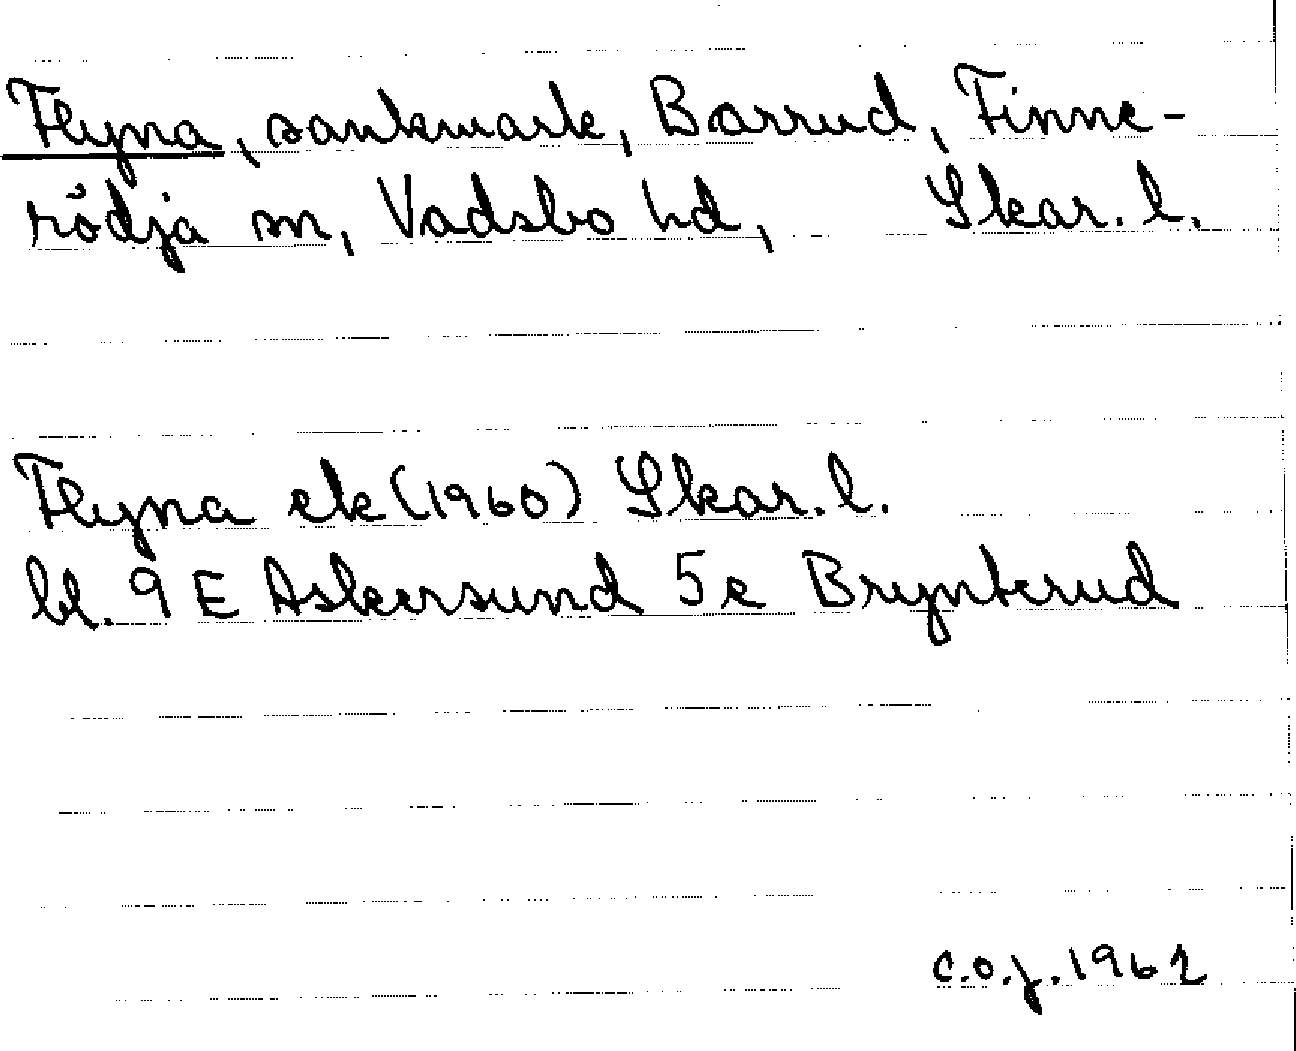 Flyna, sankmark, Barrud, Finne-
rödja sn, Vadsbo hd, Skar. l.
Flyna ek (1960) Skar. l.
bl. 9 E Askersund 5e Brynterud
C.O.J. 1962